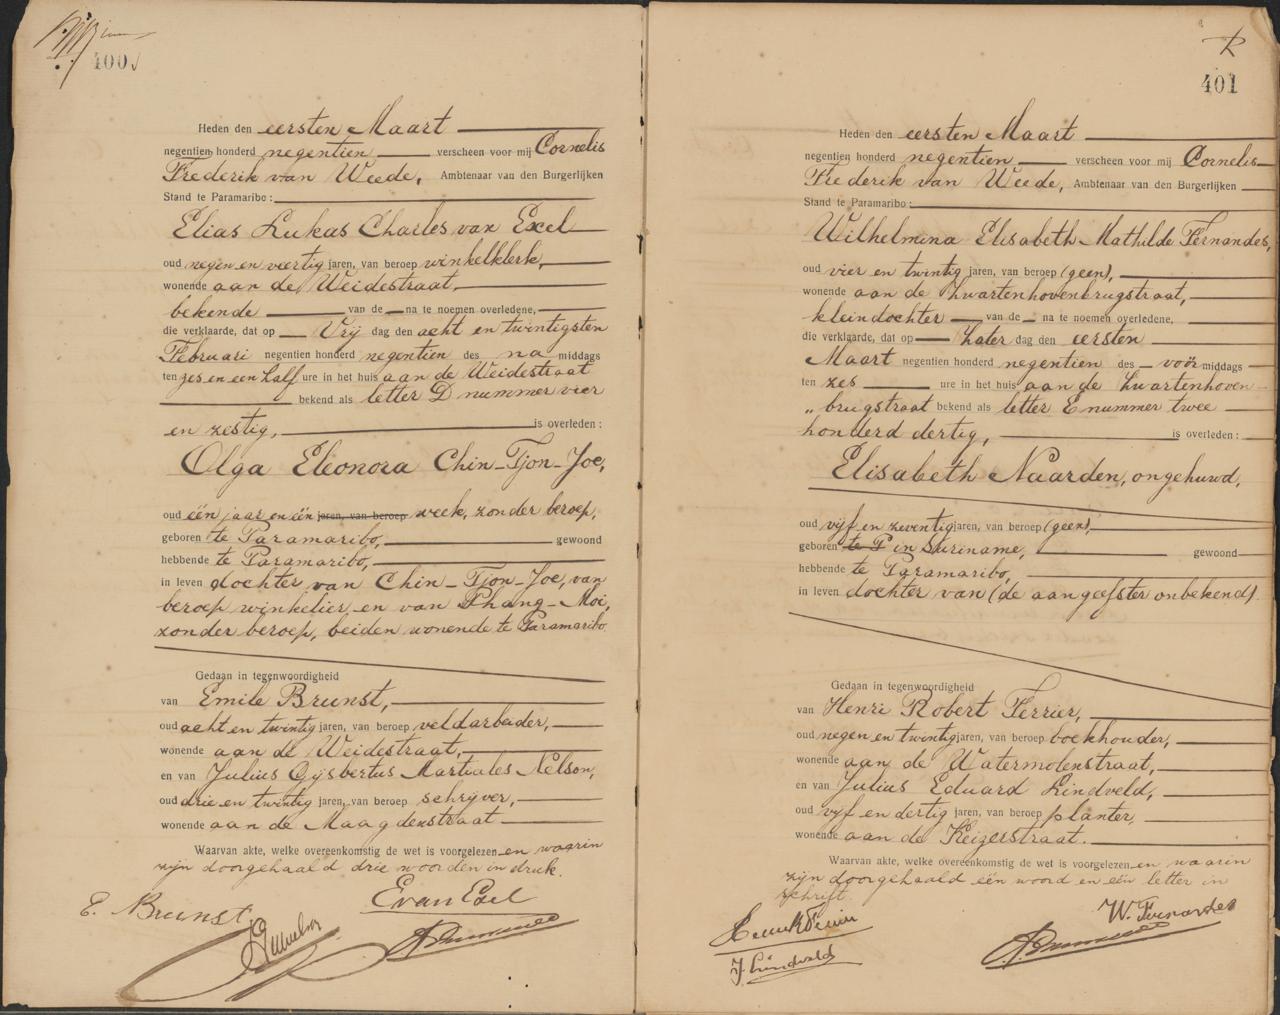 400
Heden den eersten Maart
negentien honderd negentien verscheen voor mij Cornelis
Frederik van Weede, Ambtenaar van den Burgerlijken
Stand te Paramaribo:
Elias Lukas Charles van Exel
oud negen en veertig jaren, van beroep winkelklerk,
wonende aan de Weidestraat,
bekende van de na te noemen overledene,
die verklaarde, dat op Vrij dag den acht en twintigsten
Februari negentien honderd negentien des na middags
ten zes en een half ure in het huis aan de Weidestraat
bekend als letter D nummer vier
en zestig, is overleden:
Olga Eleonora Chin-Tjon-Joe,
oud één jaar en één jaren, van beroep week, zonder beroep,
geboren te Paramaribo, gewoond
hebbende te Paramaribo,
in leven dochter van Chin-Tjon-Joe, van
beroep winkelier en van Phang-Moi,
zonder beroep, beiden wonende te Paramaribo
Gedaan in tegenwoordigheid
van Emile Brunst,
oud acht en twintig jaren, van beroep veldarbeider,
wonende aan de Weidestraat,
en van Julius Gijsbertus Martiales Nelson,
oud drie en twintig jaren, van beroep schrijver,
wonende aan de Maagdenstraat
Waarvan akte, welke overeenkomstig de wet is voorgelezen en waarin
zijn doorgehaald drie woorden in druk.
E van Exel
E. Brunst
R
401
Heden den eersten Maart
negentien honderd negentien verscheen voor mij Cornelis
Frederik van Weede, Ambtenaar van den Burgerlijken
Stand te Paramaribo:
Wilhelmina Elisabeth Mathilde Fernandes,
oud vier en twintig jaren, van beroep (geen),
wonende aan de Zwartenhovenbrugstraat,
kleindochter van de na te noemen overledene,
die verklaarde, dat op Zater dag den eersten
Maart negentien honderd negentien des voor middags
ten zes ure in het huis aan de Zwartenhoven-
„ brugstraat bekend als letter E nummer twee
honderd dertig, is overleden:
Elisabeth Naarden, ongehuwd,
oud vijf en zeventig jaren, van beroep (geen),
geboren te P in Suriname, gewoond
hebbende te Paramaribo,
in leven dochter van (de aangeefster onbekend).
Gedaan in tegenwoordigheid
van Henri Robert Ferrier,
oud negen en twintig jaren, van beroep boekhouder,
wonende aan de Watermolenstraat,
en van Julius Eduard Lindveld,
oud vijf en dertig jaren, van beroep planter,
wonende aan de Keizerstraat.
Waarvan akte, welke overeenkomstig de wet is voorgelezen en waarin
zijn doorgehaald één woord en één letter in
schrift.
W. Fernandes
J. Lindveld